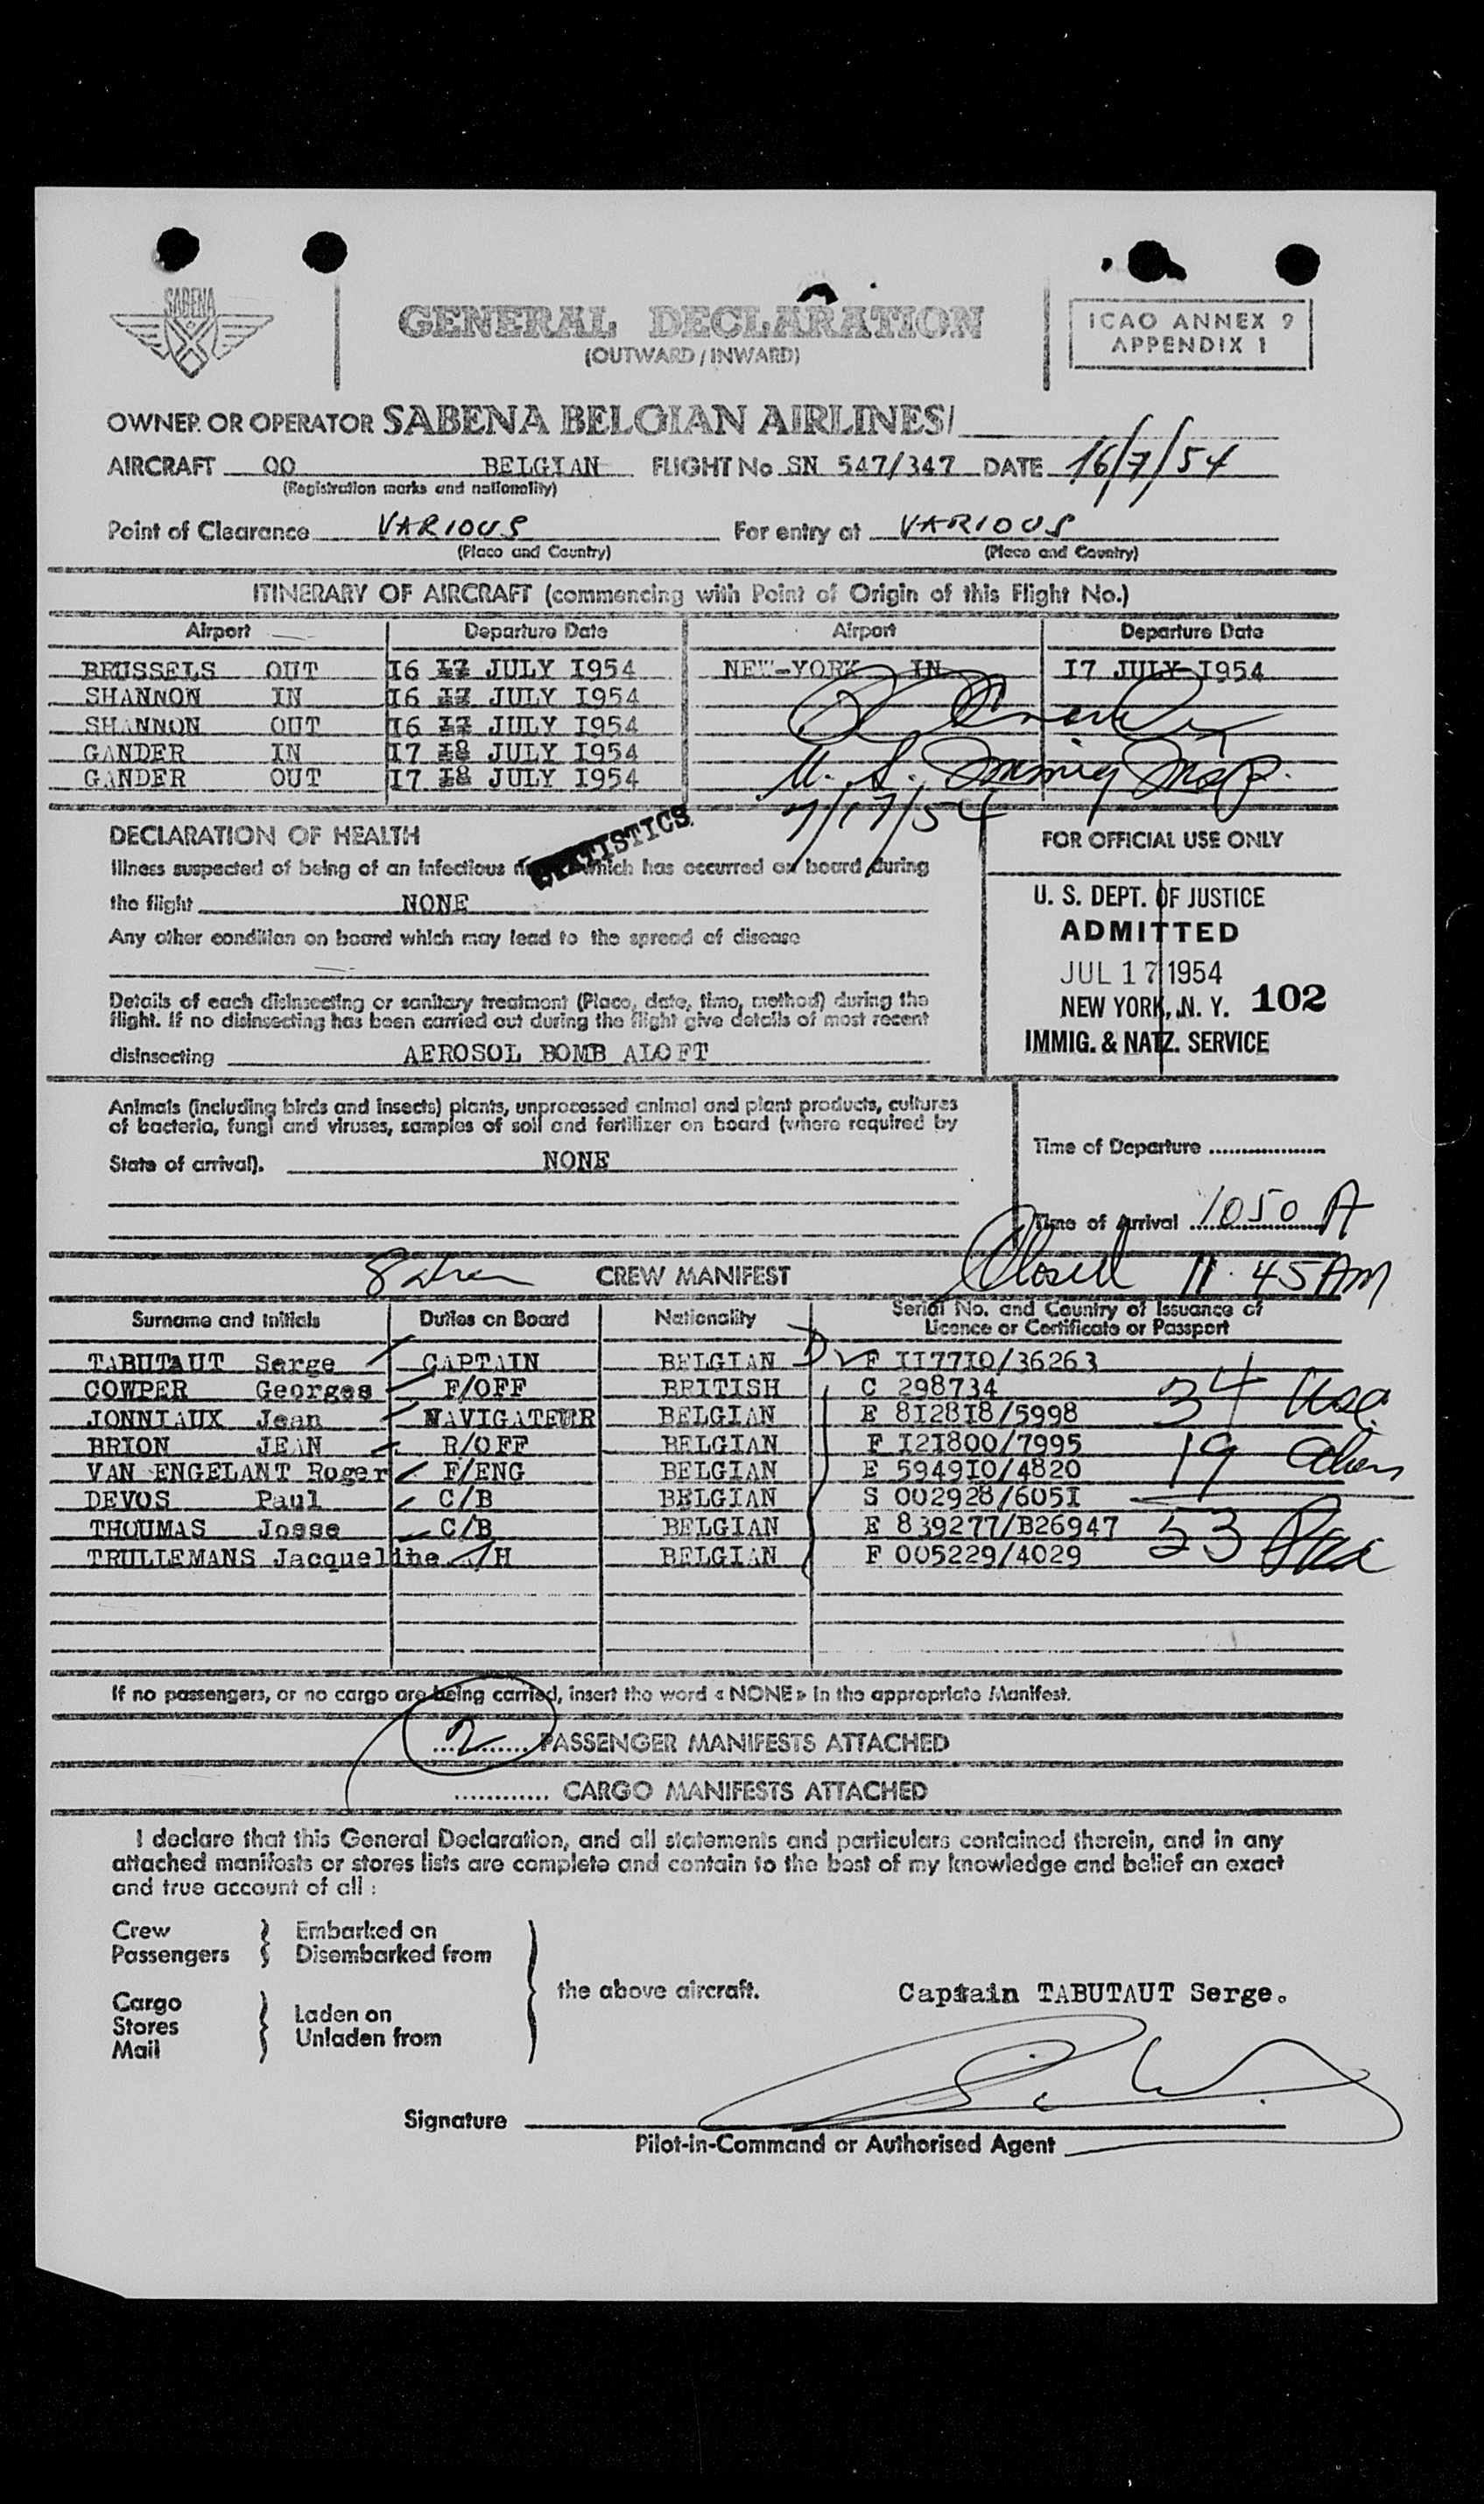 SABENA
GENERAL DECLARATION
(OUTWARD / INWARD)
ICAO ANNEX 9
APPENDIX 1
OWNER OR OPERATOR SABENA BELGIAN AIRLINES/
AIRCRAFT OO BELGIAN FLIGHT No SN 547/347 DATE 16/7/54
(Registration marks and nationality)
Point of Clearance VARIOUS For entry at VARIOUS
(Place and Country) (Place and Country)
ITINERARY OF AIRCRAFT (commencing with Point of Origin of this Flight No.)
Airport Departure Date Airport Departure Date
BRUSSELS OUT I6 I7 JULY I954 NEW-YORK IN I7 JULY I954
SHANNON IN I6 I7 JULY I954
SHANNON OUT I6 I7 JULY I954
GANDER IN I7 I8 JULY I954
GANDER OUT I7 I8 JULY I954
U. S. Immig Insp.
7/17/54
STATISTICS
DECLARATION OF HEALTH
FOR OFFICIAL USE ONLY
Illness suspected of being of an infectious which has occurred on board during
the flight NONE
Any other condition on board which may lead to the spread of disease
Details of each disinsecting or sanitary treatment (Place, date, time, method) during the
flight. If no disinsecting has been carried out during the flight give details of most recent
disinsecting AEROSOL BOMB ALOFT
U. S. DEPT. OF JUSTICE
ADMITTED
JUL 17 1954
NEW YORK, N. Y. 102
IMMIG. & NATZ. SERVICE
Animals (including birds and insects) plants, unprocessed animal and plant products, cultures
of bacteria, fungi and viruses, samples of soil and fertilizer on board (where required by
State of arrival). NONE
Time of Departure
Time of Arrival 1050 A
Closed 11.45 AM
CREW MANIFEST
Surname and Initials Duties on Board Nationality Serial No. and Country of Issuance of
Licence or Certificate or Passport
TABUTAUT Serge CAPTAIN BELGIAN F II77I0/36263
COWPER Georges F/OFF BRITISH C 298734
JONNIAUX Jean NAVIGATEUR BELGIAN E 8I28I8/5998
BRION JEAN R/OFF BELGIAN F I2I800/7995
VAN ENGELANT Roger F/ENG BELGIAN E 5949I0/4820
DEVOS Paul C/B BELGIAN S 002928/605I
THOUMAS Josse C/B BELGIAN E 839277/B26947
TRULLEMANS Jacqueline A/H BELGIAN F 005229/4029
34 USC
19 Aliens
53 Pax
If no passengers, or no cargo are being carried, insert the word « NONE » in the appropriate Manifest.
2 PASSENGER MANIFESTS ATTACHED
CARGO MANIFESTS ATTACHED
I declare that this General Declaration, and all statements and particulars contained therein, and in any
attached manifests or stores lists are complete and contain to the best of my knowledge and belief an exact
and true account of all :
Crew
Passengers
Embarked on
Disembarked from
Cargo
Stores
Mail
Laden on
Unladen from
the above aircraft.
Captain TABUTAUT Serge.
Signature
Pilot-in-Command or Authorised Agent